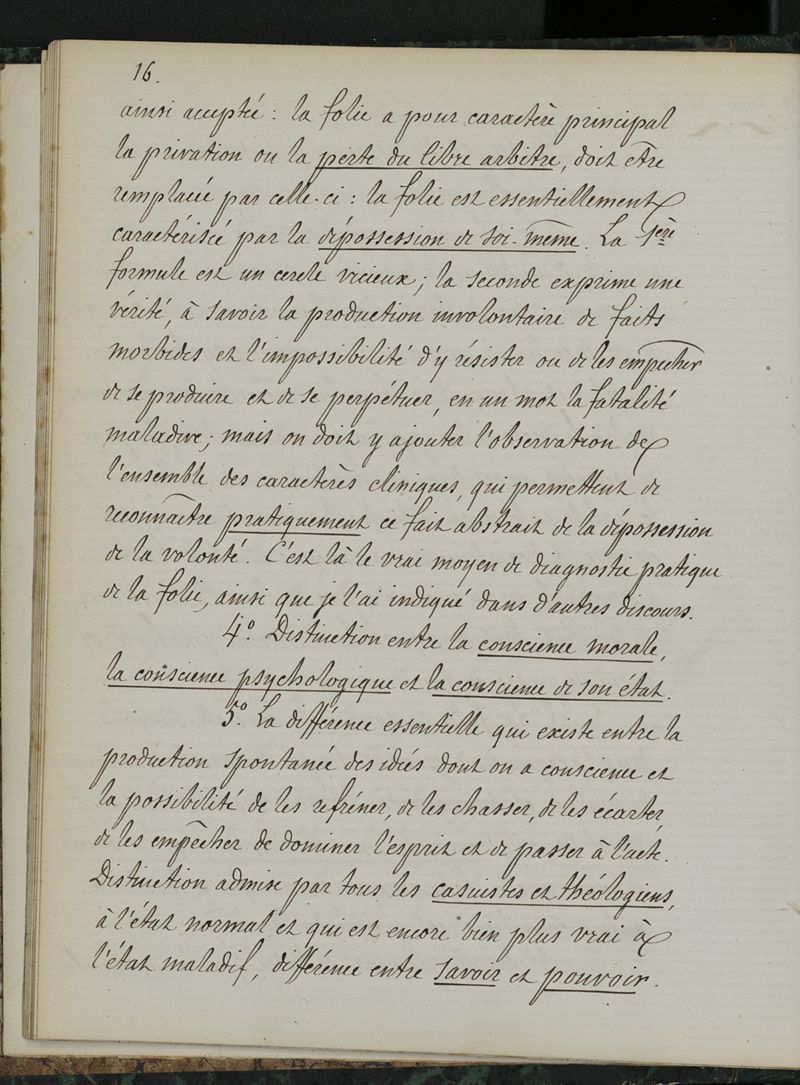 16.
ainsi acceptée : la folie a pour caractère principal
la privation ou la perte du libre arbitre, doit être
remplacée par celle-ci : la folie est essentiellement
caractérisée par la dépossession de soi-même. La 1ère
formule est un cercle vicieux ; la seconde exprime une
vérité, à savoir la production involontaire de faits
morbides et l'impossibilité d'y résister ou de les empêcher
de se produire et de se perpétuer, en un mot la fatalité
maladive ; mais on doit y ajouter l'observation de
l'ensemble des caractères cliniques, qui permettent de
reconnaître pratiquement ce fait abstrait de la dépossession
de la volonté. C'est là le vrai moyen de diagnostic pratique
de la folie, ainsi que je l'ai indiqué dans d'autres discours.
4°. Distinction entre la conscience morale,
la conscience psychologique et la conscience de son état.
5°. La différence essentielle qui existe entre la
production spontanée des idées dont on a conscience et
la possibilité de les refréner, de les chasser, de les écarter,
de les empêcher de dominer l'esprit et de passer à l'acte.
Distinction admise par tous les casuistes et théologiens,
à l'état normal et qui est encore bien plus vrai à
l'état maladif, différence entre savoir et pouvoir.